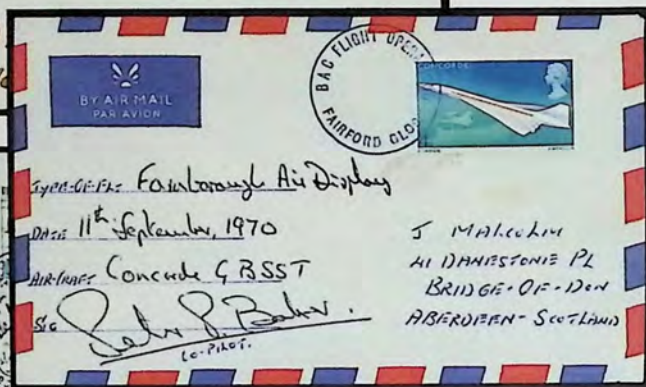 BY AIR MAIL
PAR AVION
BAC FLIGHT OPER
FAIRFORD GLOS
CONCORDE
TYPE-OF-FL: Farnborough Air Display
DATE: 11th September, 1970
AIRCRAFT: Concorde GBSST
SIG
CO-PILOT.
J MALCOLM
41 DANESTONE PL
BRIDGE-OF-DON
ABERDEEN-SCOTLAND